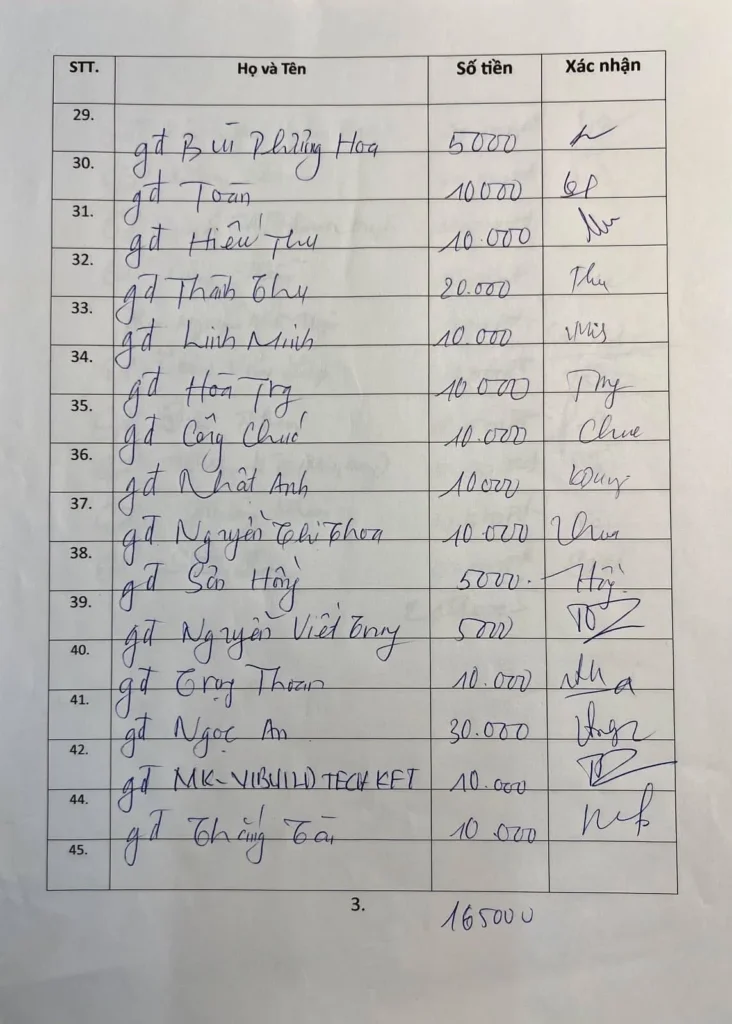 STT. Họ và Tên Số tiền Xác nhận
29. gđ Bùi Phương Hoa 5000
30. gđ Toàn 10000
31. gđ Hiếu Thu 10.000
32. gđ Thành Thu 20.000 Thu
33. gđ Linh Minh 10.000
34. gđ Hoa Trg 10.000
35. gđ Công Chức 10.000
36. gđ Nhật Anh 10000
37. gđ Nguyễn Thị Thoa 10.000
38. gđ Sân Hồng 5000.
39. gđ Nguyễn Viết Trung 5000
40. gđ Trọng Thoan 10.000
41. gđ Ngọc An 30.000
42. gđ MK-VIBUILD TECH KFT 10.000
44. gđ Thắng Tài 10.000
45.
3.
165000